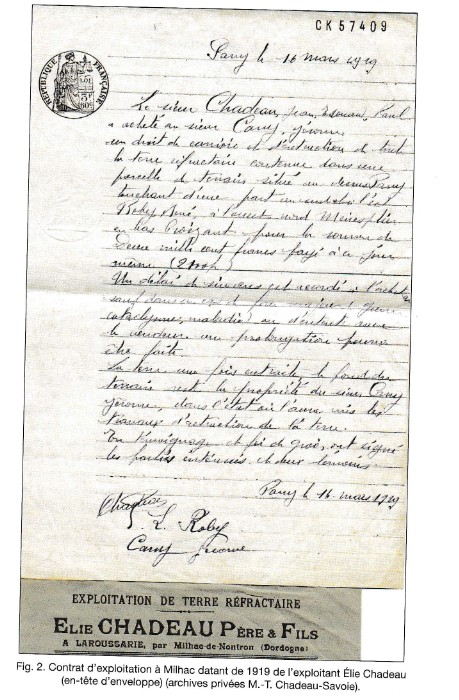 CK57409
RÉPUBLIQUE FRANÇAISE
le 16 mars 1919
Le sieur Chadeau, Jean, Édouard, Paul
a acheté au sieur Cany, Jérome
un droit de carrière et d'extraction de toute
la terre réfractaire contenue dans une
parcelle de terrain située au
touchant d'une part au l'est
Roby René, à l'ouest nord
en bas Croizant pour la somme de
Deux mille cent francs payé à ce jour
même
Un délai de ans est accordé à l'acheteur
sauf dans un cas de force majeure (guerre
cataclysme, maladie) ou d'entente avec
le vendeur une prolongation pourra
être faite.
La terre une fois extraite le fond du
terrain reste la propriété du sieur Cany
Jérome, dans l'état où l'aura mis les
travaux d'extraction de la terre.
En témoignage et foi de quoi, ont signé
les parties intéressées et deux témoins
le 16 mars 1919
Chadeau
L. Roby
Cany Jérome
EXPLOITATION DE TERRE RÉFRACTAIRE
ELIE CHADEAU PÈRE & FILS
A LAROUSSARIE, par Milhac-de-Nontron (Dordogne)
Fig. 2. Contrat d'exploitation à Milhac datant de 1919 de l'exploitant Élie Chadeau
(en-tête d'enveloppe) (archives privées M.-T. Chadeau-Savoie).